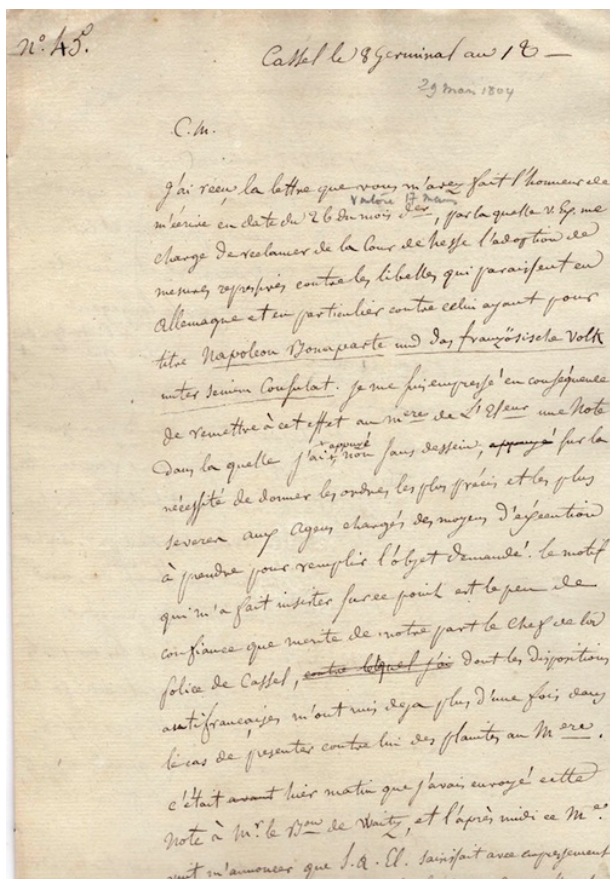 N.º 45.
Cassel le 8 Germinal an 12 —
29 mars 1804
C. M.
J'ai reçu, la lettre que vous m'avez fait l'honneur de
ventose 17 mars
m'écrire en date du 26 du mois der, par la quelle v. Ex. me
charge de reclamer de la Cour de hesse l'adoption de
mesures repressives contre les libelles qui paraissent en
Allemagne et en particulier contre celui ayant pour
titre Napoleon Bonaparte und das französische Volk
unter seinem Consulat. je me suis empressé en conséquence
de remettre à cet effet au mere de L'Elseur une Note
appuyé
dans la quelle j'ai, non sans dessein, appuyé sur la
nécessité de donner les ordres les plus précis et les plus
severes aux Agens chargés des moyens d'éxécution
à prendre pour remplir l'objet demandé. le motif
qui m'a fait insister sur ce point est le peu de
confiance que merite de notre part le Chef de la
police de Cassel, contre lequel j'ai dont les dispositions
antifrancaises m'ont mis deja plus d'une fois dans
le cas de presenter contre lui des plaintes au Mere.
c'était avant hier matin que j'avais envoyé cette
Note à Mr. le Bon de Waitz, et l'après midi ce Me.
vint m'annoncer que S. A. El. saisissait avec empressement